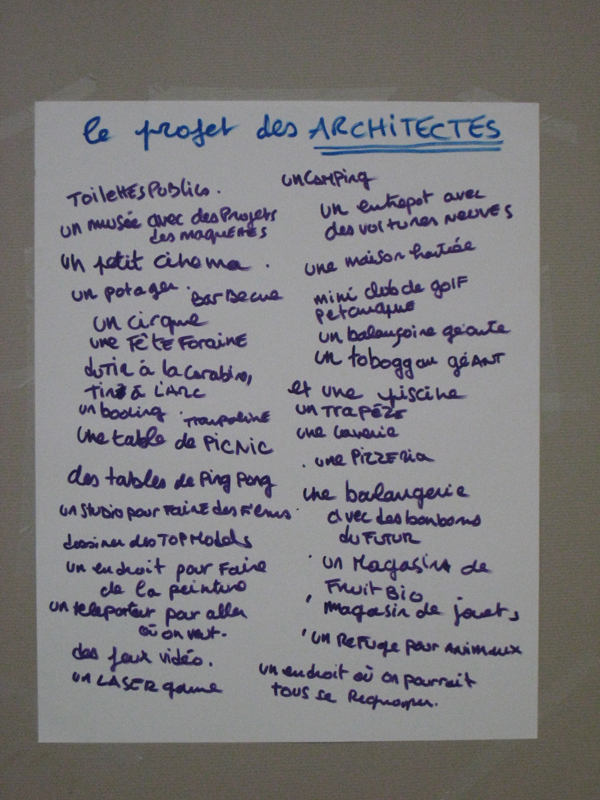 le projet des ARCHITECTES
TOILETTES PUBLICS.
un musée avec des Projets
des maquettes
un petit cinema.
un potager. BarBecue
un cirque
une FÊTE FORAINE
du TIR à la Carabine,
TIR à L'ARC
un booling. Trampoline
une table de PicNiC
des tables de Ping Pong
un STUDIO pour FAIRE des Films
dessiner des TOP Models
un endroit pour Faire
de la peinture
un teleporteur pour aller
où on veut.
des jeux vidéo.
un LASER game
un CAMPING
un entrepot avec
des voitures neuves
une maison hantée
mini club de golf
petanque
un balançoire géante
un toboggan géant
et une piscine
un TRAPÈZE
une laverie
. une PIZZERIA
une balangerie
avec des bonbons
du FUTUR
un magasin de
Fruit Bio
magasin de jouets
un REFUGE pour animaux
un endroit où on pourrait
tous se Regrouper.